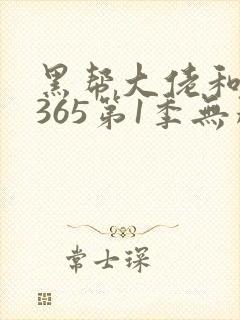 黑帮大佬和
365第1季無
常士琛